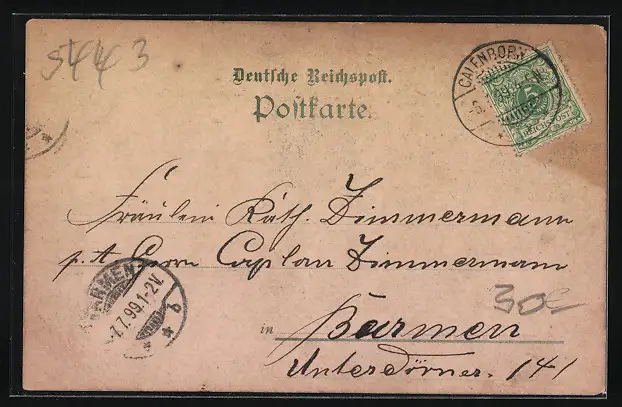 5443
CALENBORN
Deutsche Reichspost.
Postkarte.
5
REICHSPOST
Fräulein Kath. Zimmermann
p. A Herrn Caplan Zimmermann
BARMEN
7.7.99.1-2V.
in Barmen
Unterdörner. 141